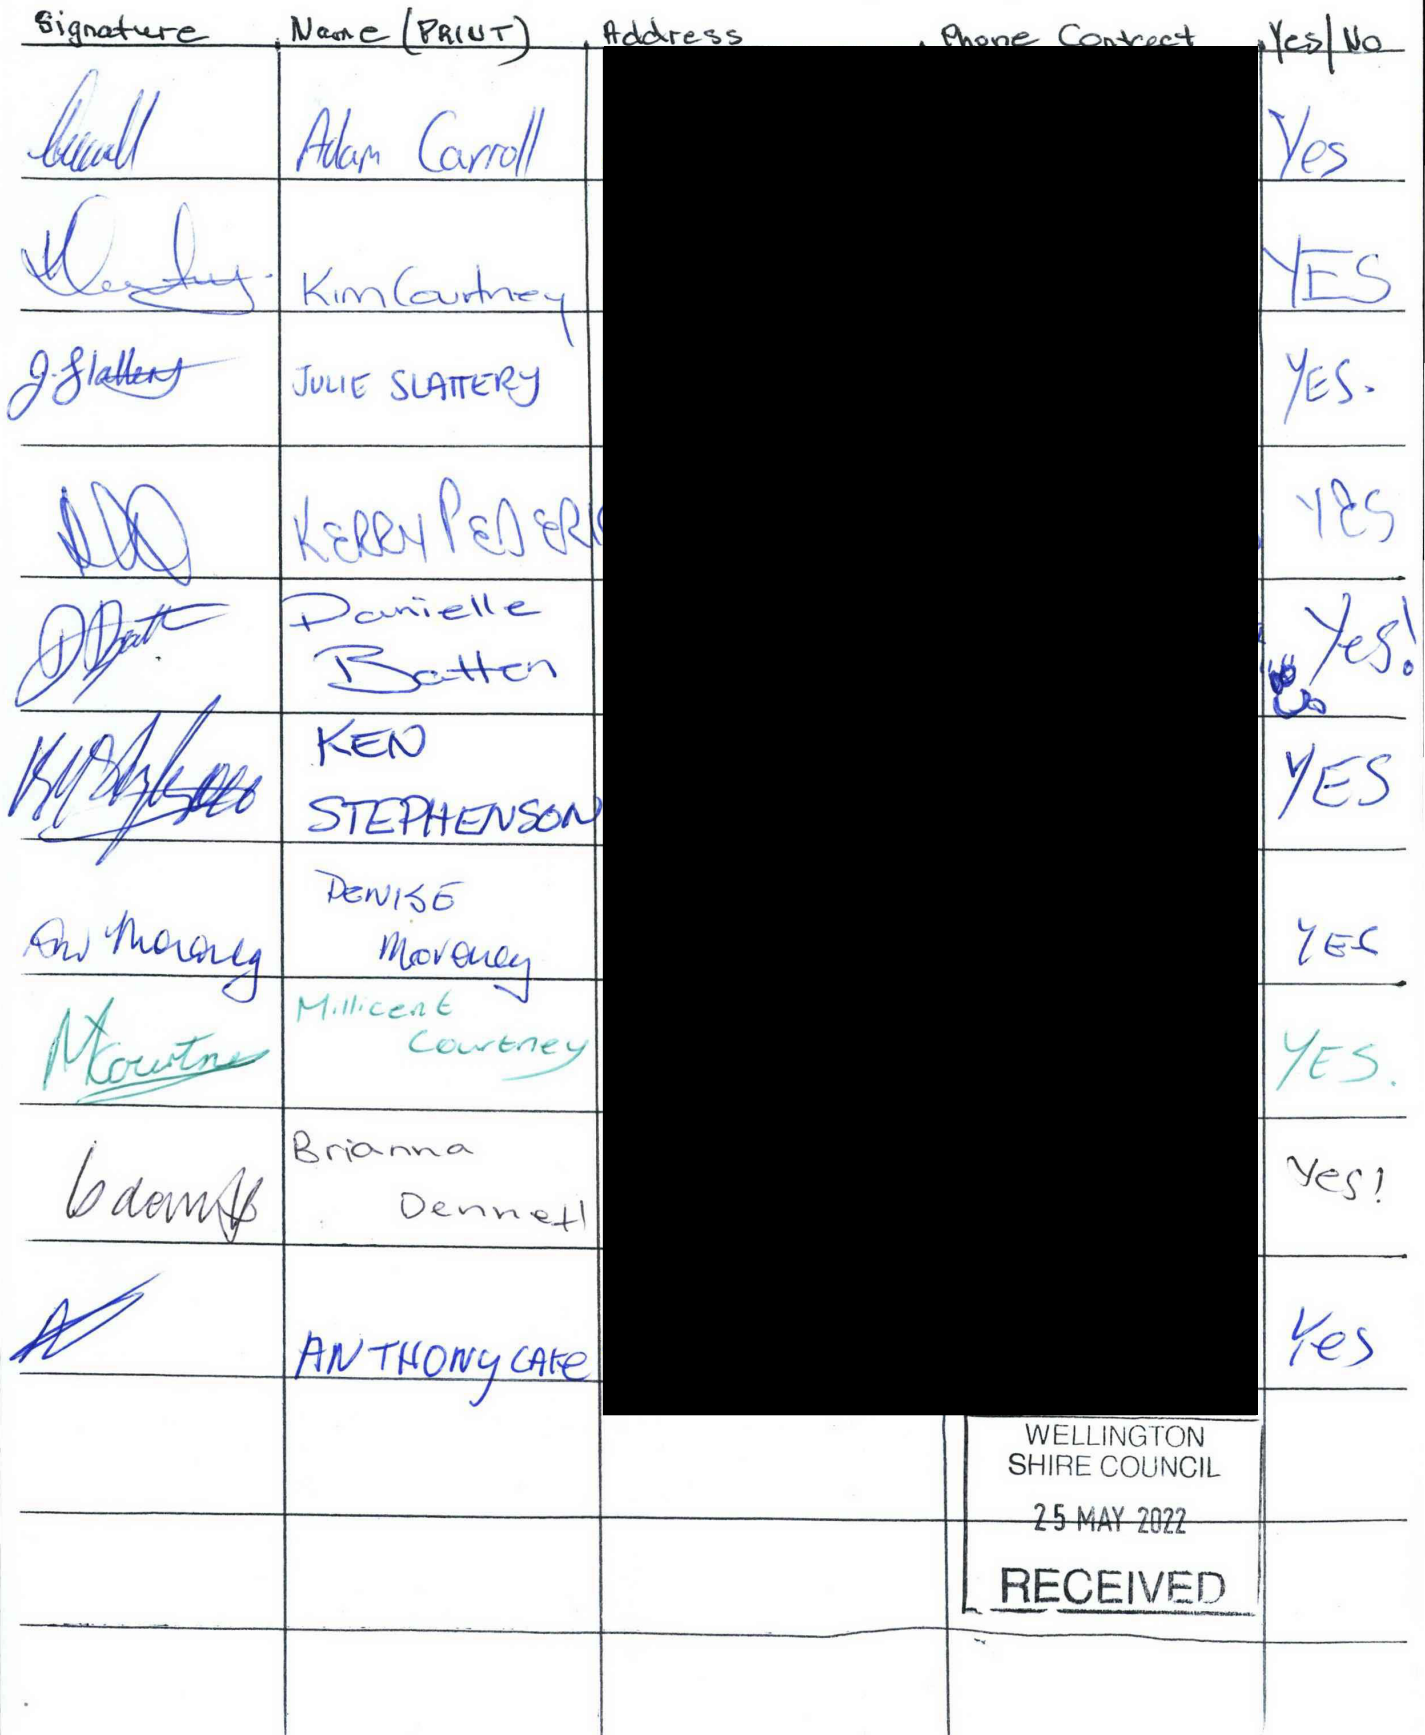 Signature Name (PRINT) Address Phone Contact Yes/No
Adam Carroll Yes
Kim Courtney YES
J. Slattery JULIE SLATTERY YES.
KERRY PEDER YES
Danielle
Batten Yes!
KEN
STEPHENSON YES
DENISE
Moroney YES
Millicent
Courtney YES.
Brianna
Dennett Yes!
ANTHONY CAFE Yes
WELLINGTON
SHIRE COUNCIL
25 MAY 2022
RECEIVED